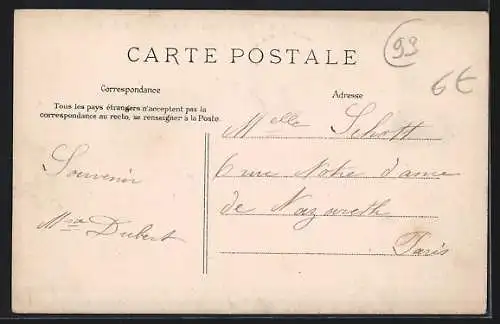 CARTE POSTALE
93
6€
Correspondance
Adresse
Tous les pays étrangers n'acceptent pas la
correspondance au recto, se renseigner à la Poste.
Melle Schott
6 rue Notre dame
de Nazareth
Paris
Souvenir
Dubert